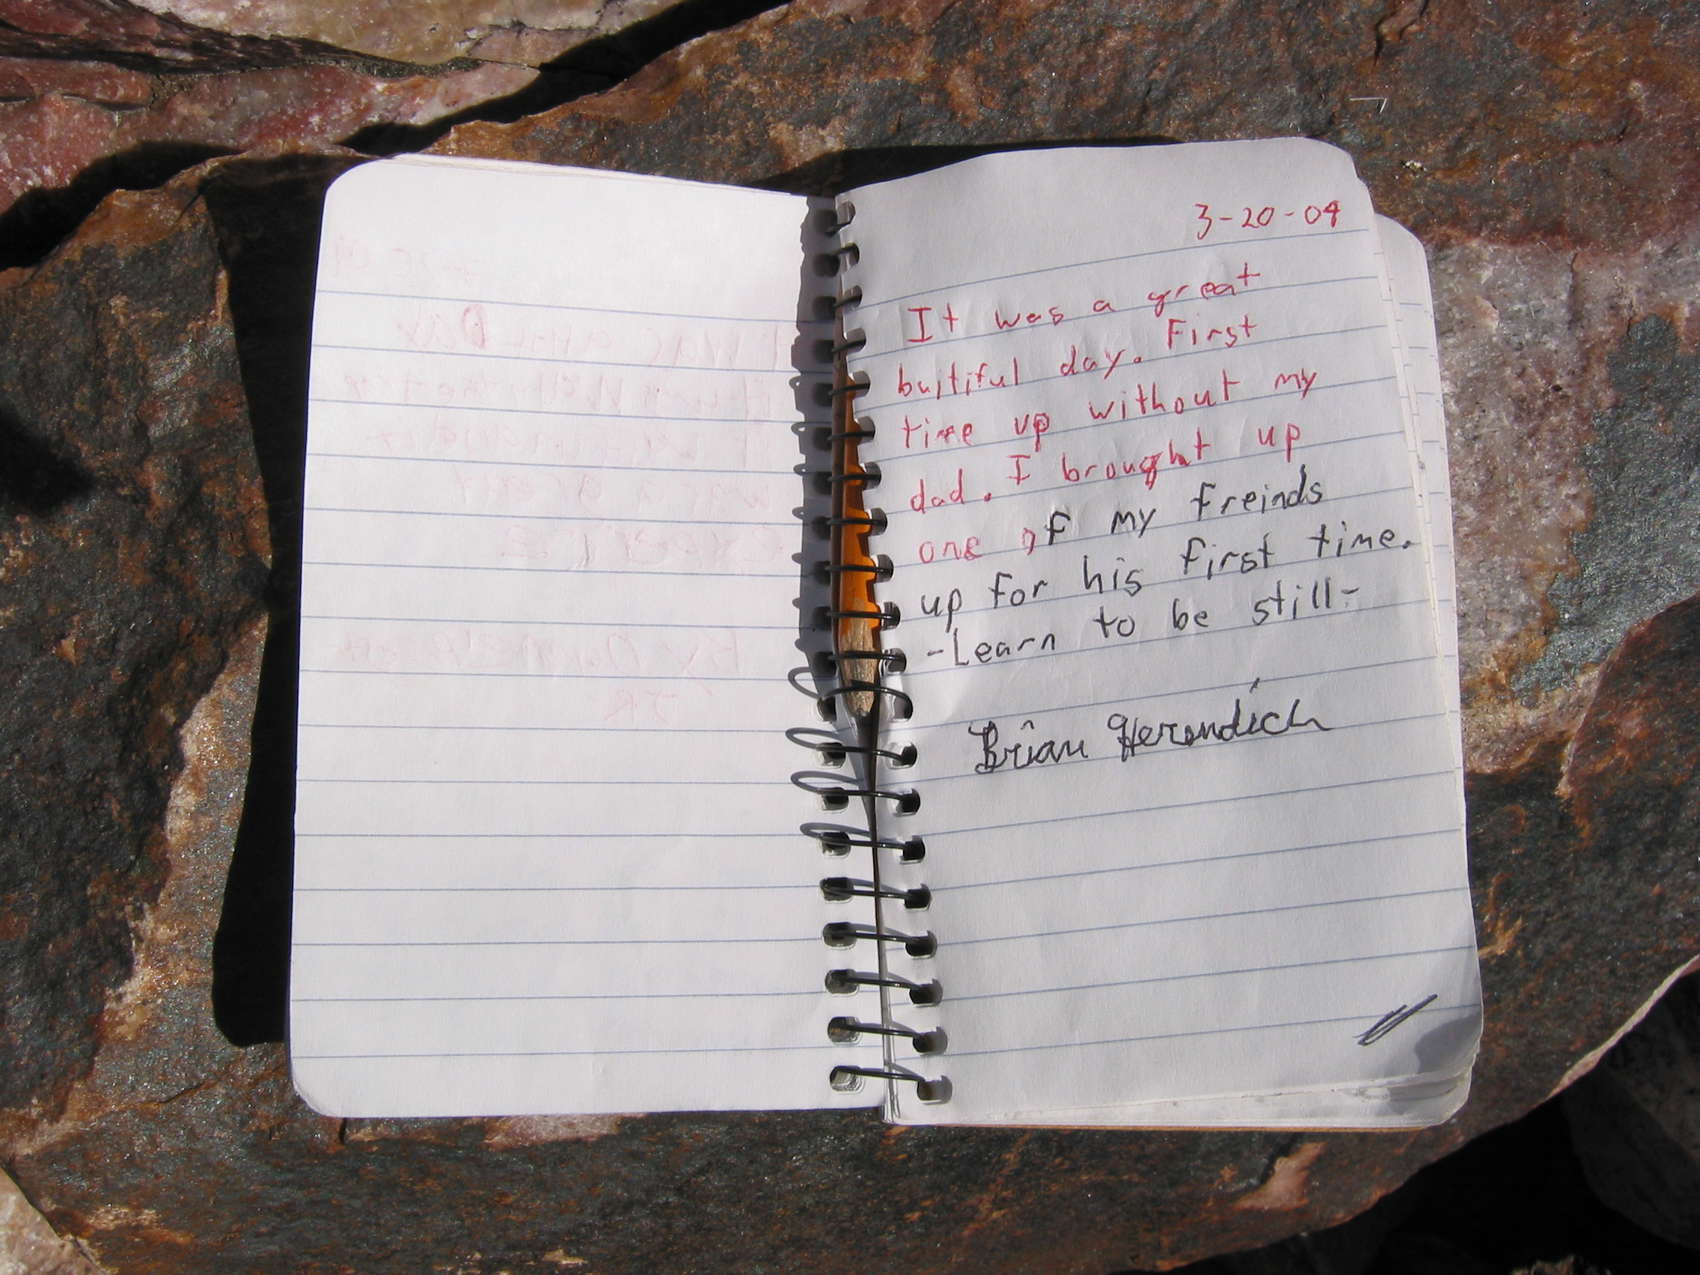 3-20-04
It was a great
butiful day. First
time up without my
dad. I brought up
one of my freinds
up for his first time.
-Learn to be still-
Brian Herendich